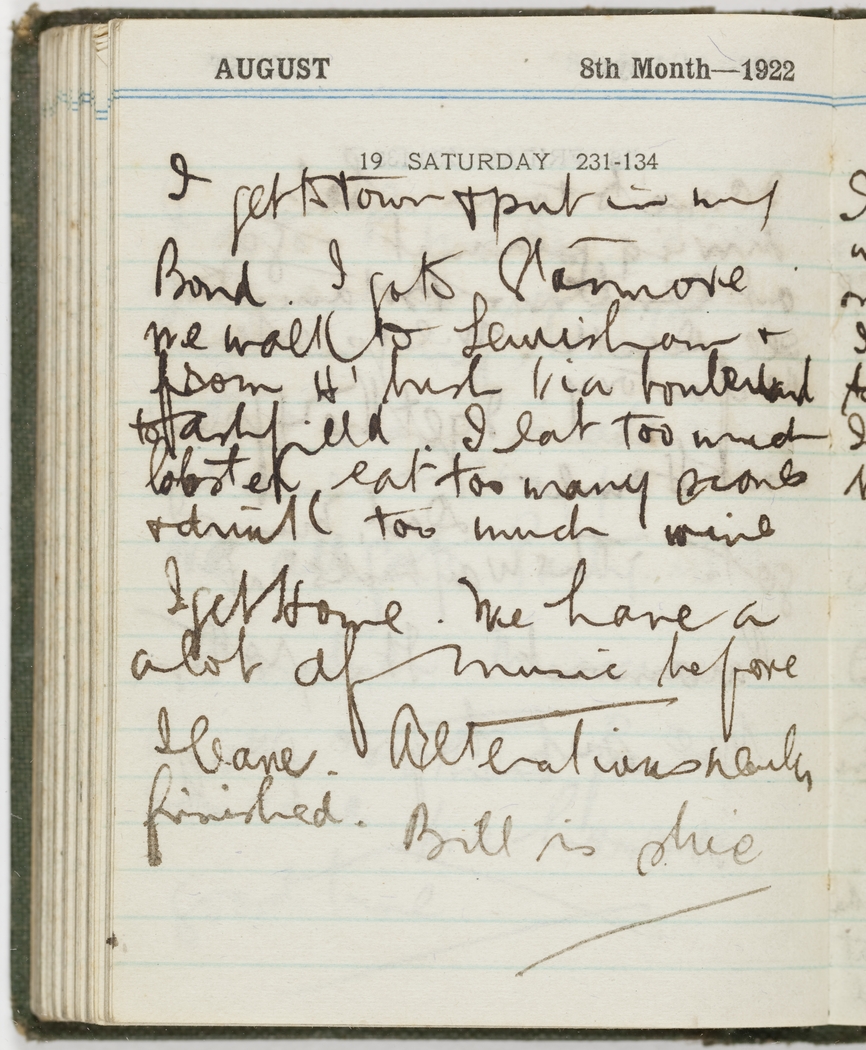 AUGUST 8th Month—1922
19 SATURDAY 231-134
I get to town & put in my
Bond. I go to Stanmore
we walk to Lewisham &
from H' bush via boulevard
to Ashfield. I eat too much
lobster, eat too many scones
& drink too much wine
I get Home. We have a
alot of music before
I leave. Alterations nearly
finished. Bill is shic